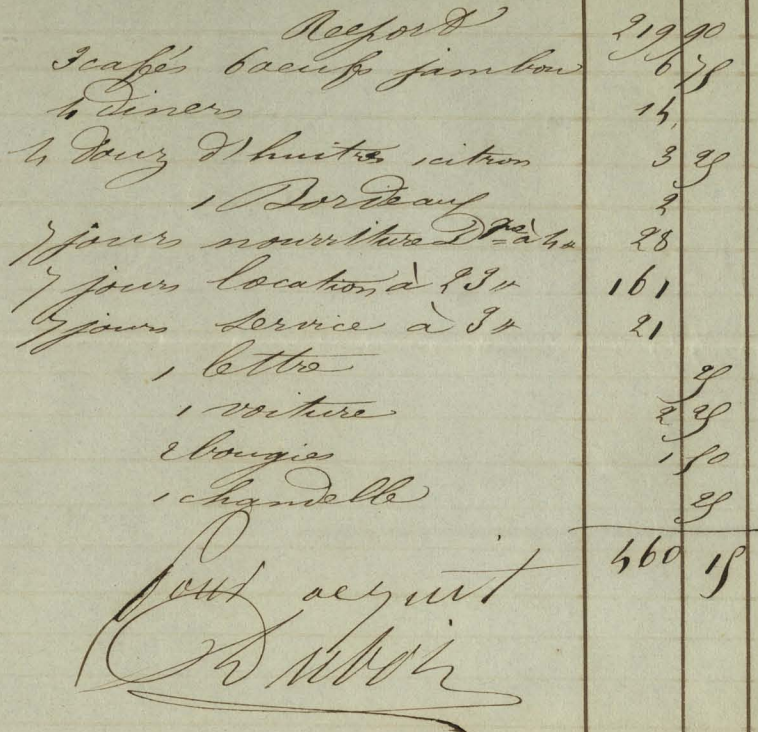 Report 219 90
3 cafés 6 oeufs jambon 6 75
4 diners 14
4 Douz d'huitres 1 citron 3 25
1 Bordeaux 2
7 jours nourriture à 4 " 28
7 jours location à 23 " 161
7 jours service à 3 " 21
1 lettre 25
1 voiture 2 25
2 bougies 1 50
1 chandelle 25
460 15
Pour acquit
Dubois